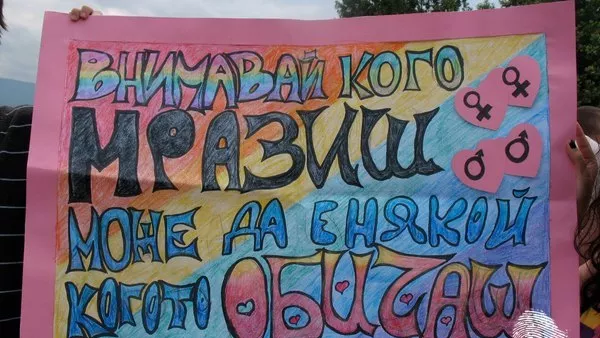 ВНИМАВАЙ КОГО
МРАЗИШ
МОЖЕ ДА Е НЯКОЙ
КОГОТО ОБИЧАШ